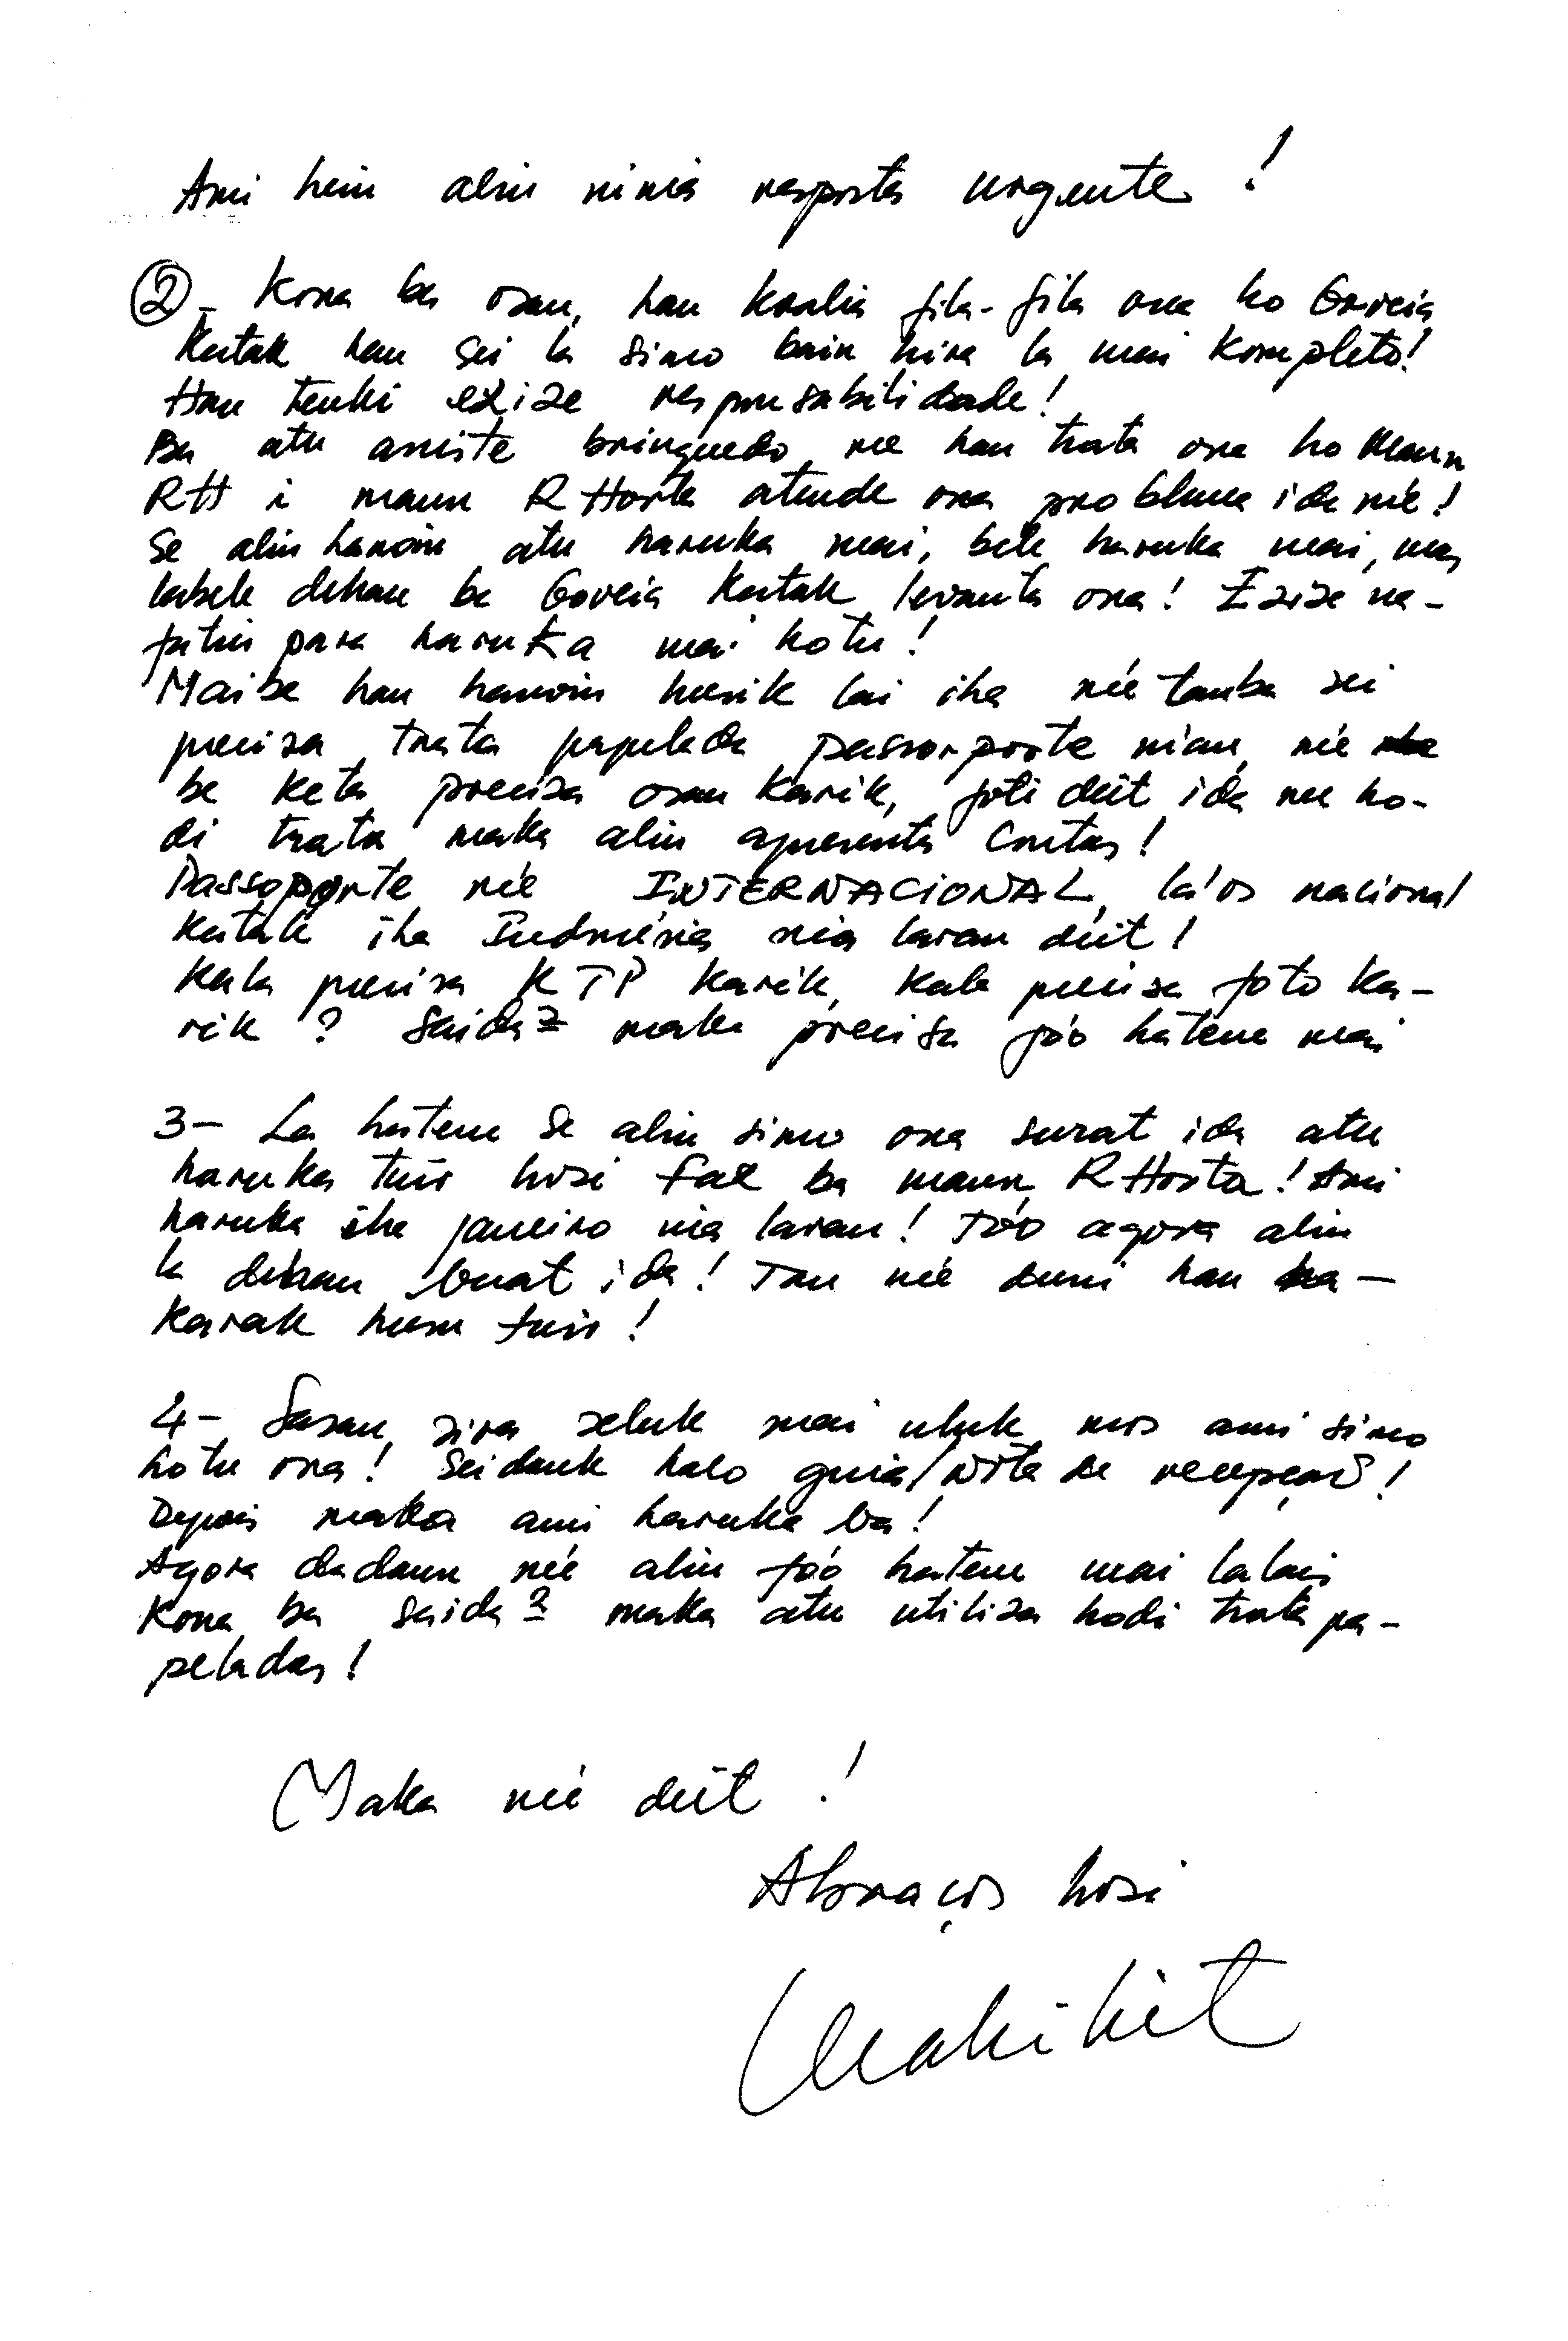 Ami hein alin ninia resposta urgente!
② - Kona ba osan, hau koalia fila-fila ona ho Goveia
katak hau sei la simo bain hira la mai kompleto!
Hau tenki exize responsabilidade!
Ba atu assiste brinquedo ne'e hau trata ona ho Maun
RH i maun R Horta atende ona problema ida ne'e!
Se alin hanoin atu haruka mai, bele haruka mai, mas
labele dehan ba Goveia katak levanta ona! Exize na-
fatin para haruka mai hotu!
Maibe hau hanoin husik lai iha ne'e tamba sei
precisa trata papelada passorporte nian, ne'e
be keta precisa osan karik, foti deit ida ne'e ho-
di trata maka alin apresenta Contas!
Passaporte ne'e INTERNACIONAL, la'os nacional
katak iha Indonésia nia laran deit!
Kala precisa KTP karik, kala precisa foto ka-
rik? Saida 2 maka precisa fó'o hatene mai
3- La hatene se alin simo ona surat ida atu
haruka tuir hosi fax ba maun R Horta! Ami
haruka iha janeiro nia laran! Tó'o agora alin
la dehan buat ida! Tan ne'e duni hau ha-
karak husu tuir!
4- Sasan sira seluk mai uluk nos ami simo
hotu ona! Seidauk halo guia/Nota de recepção!
Depois maka ami haruka ba!
Agora dadaun ne'e alin fó'o hatene mai lalais
Kona ba saida 2 maka atu utiliza hodi trata pa-
peladas!
Maka ne'e deit!
Abraços hosi